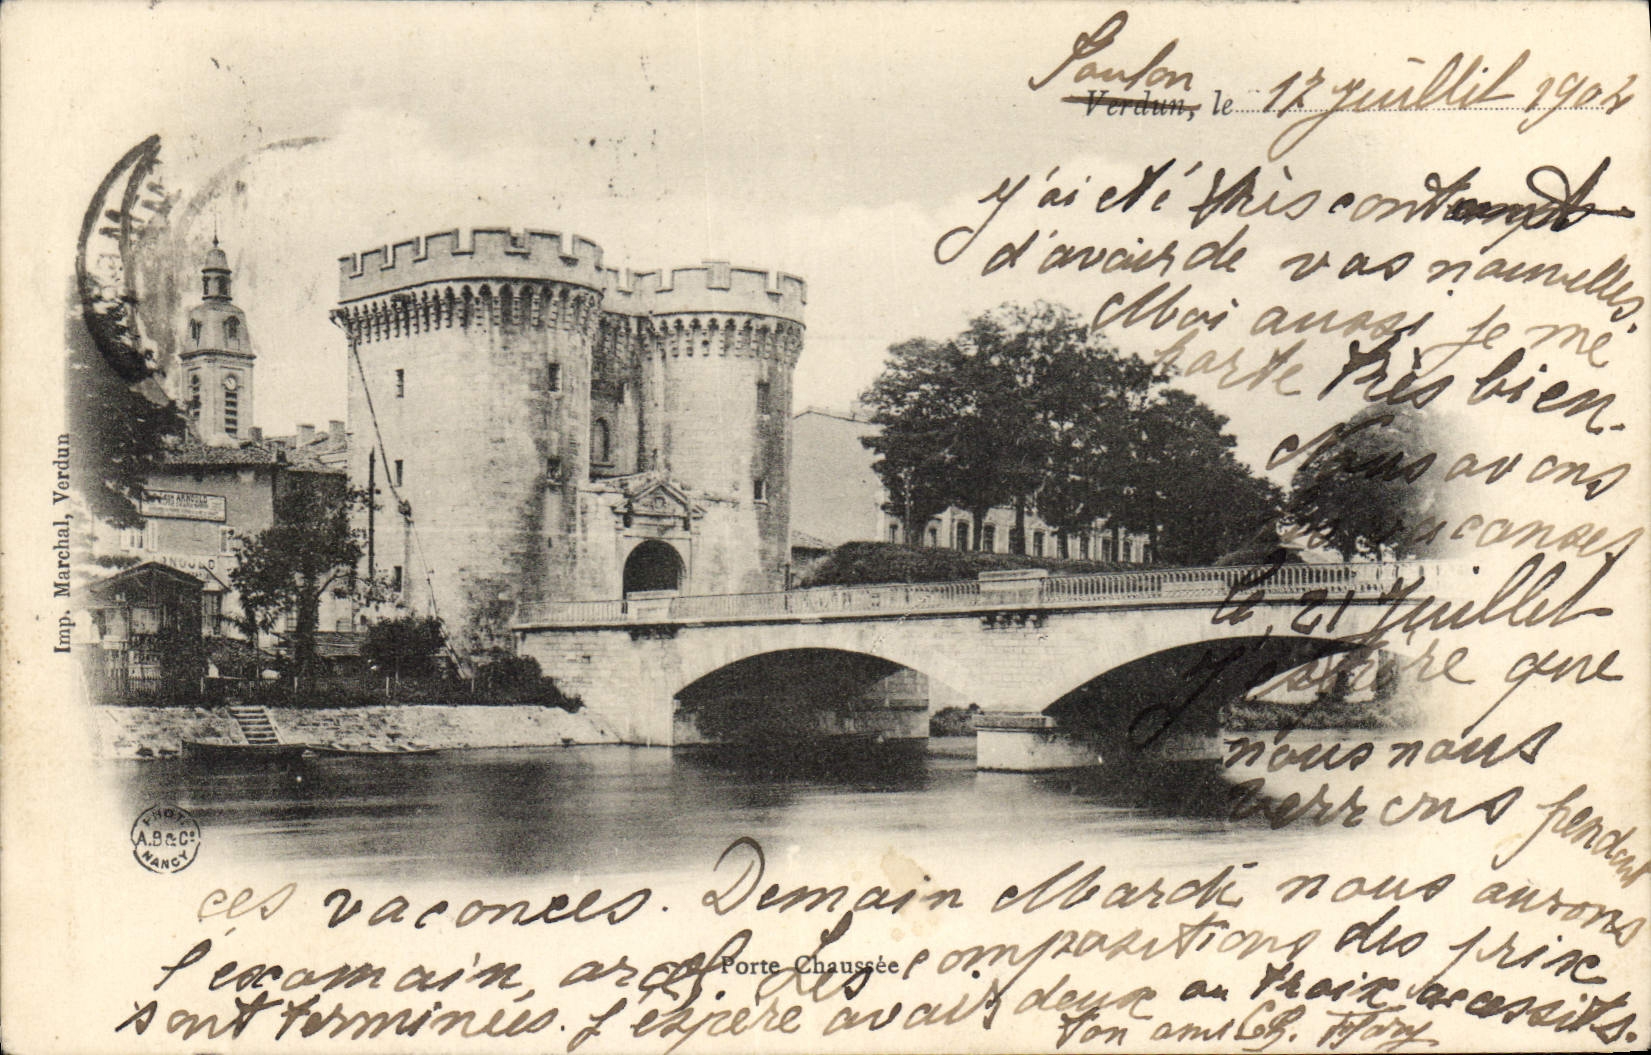 Toulon
Verdun, le 17 Juillet 1904
J'ai eté très content
d'avoir de vos nouvelles.
Moi aussi je me
porte très bien.
Nous avons
les vacances
le 21 Juillet
J'espère que
nous nous
verrons pendant
ces vaconces. Demain Mardi nous aurons
l'examain, les compositions des prix
sont terminées. J'espère avoir deux ou troix accessits.
ton ami Ch.
Porte Chaussée
Imp. Marchal, Verdun
PHOT.
A.B & Cie
NANCY